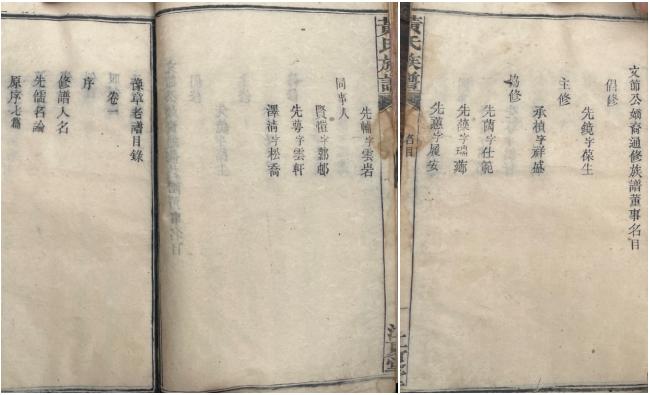 文節公嫡裔通修族譜董事名目
倡修
先鏡字葆生
主修
承楨字祥盛
協修
先茵字仕範
先蓂字瑞薌
先蕙字展安
黃氏族譜
名目
黃氏族譜
江夏堂
先輔字雲岩
同事人
賢愷字鄰邨
先蕚字雲軒
澤清字松喬
豫章老譜目錄
卷一
序
修譜人名
先儒名論
原序七篇